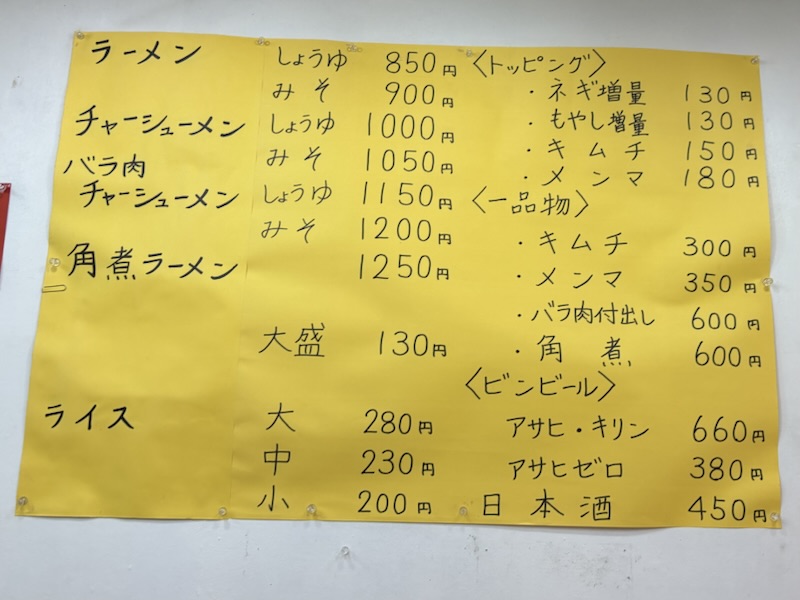 ラーメン しょうゆ 850円
みそ 900円
チャーシューメン しょうゆ 1000円
みそ 1050円
バラ肉
チャーシューメン しょうゆ 1150円
みそ 1200円
角煮ラーメン 1250円
大盛 130円
ライス 大 280円
中 230円
小 200円
〈トッピング〉
・ネギ増量 130円
・もやし増量 130円
・キムチ 150円
・メンマ 180円
〈一品物〉
・キムチ 300円
・メンマ 350円
・バラ肉付出し 600円
・角煮 600円
〈ビンビール〉
アサヒ・キリン 660円
アサヒゼロ 380円
日本酒 450円